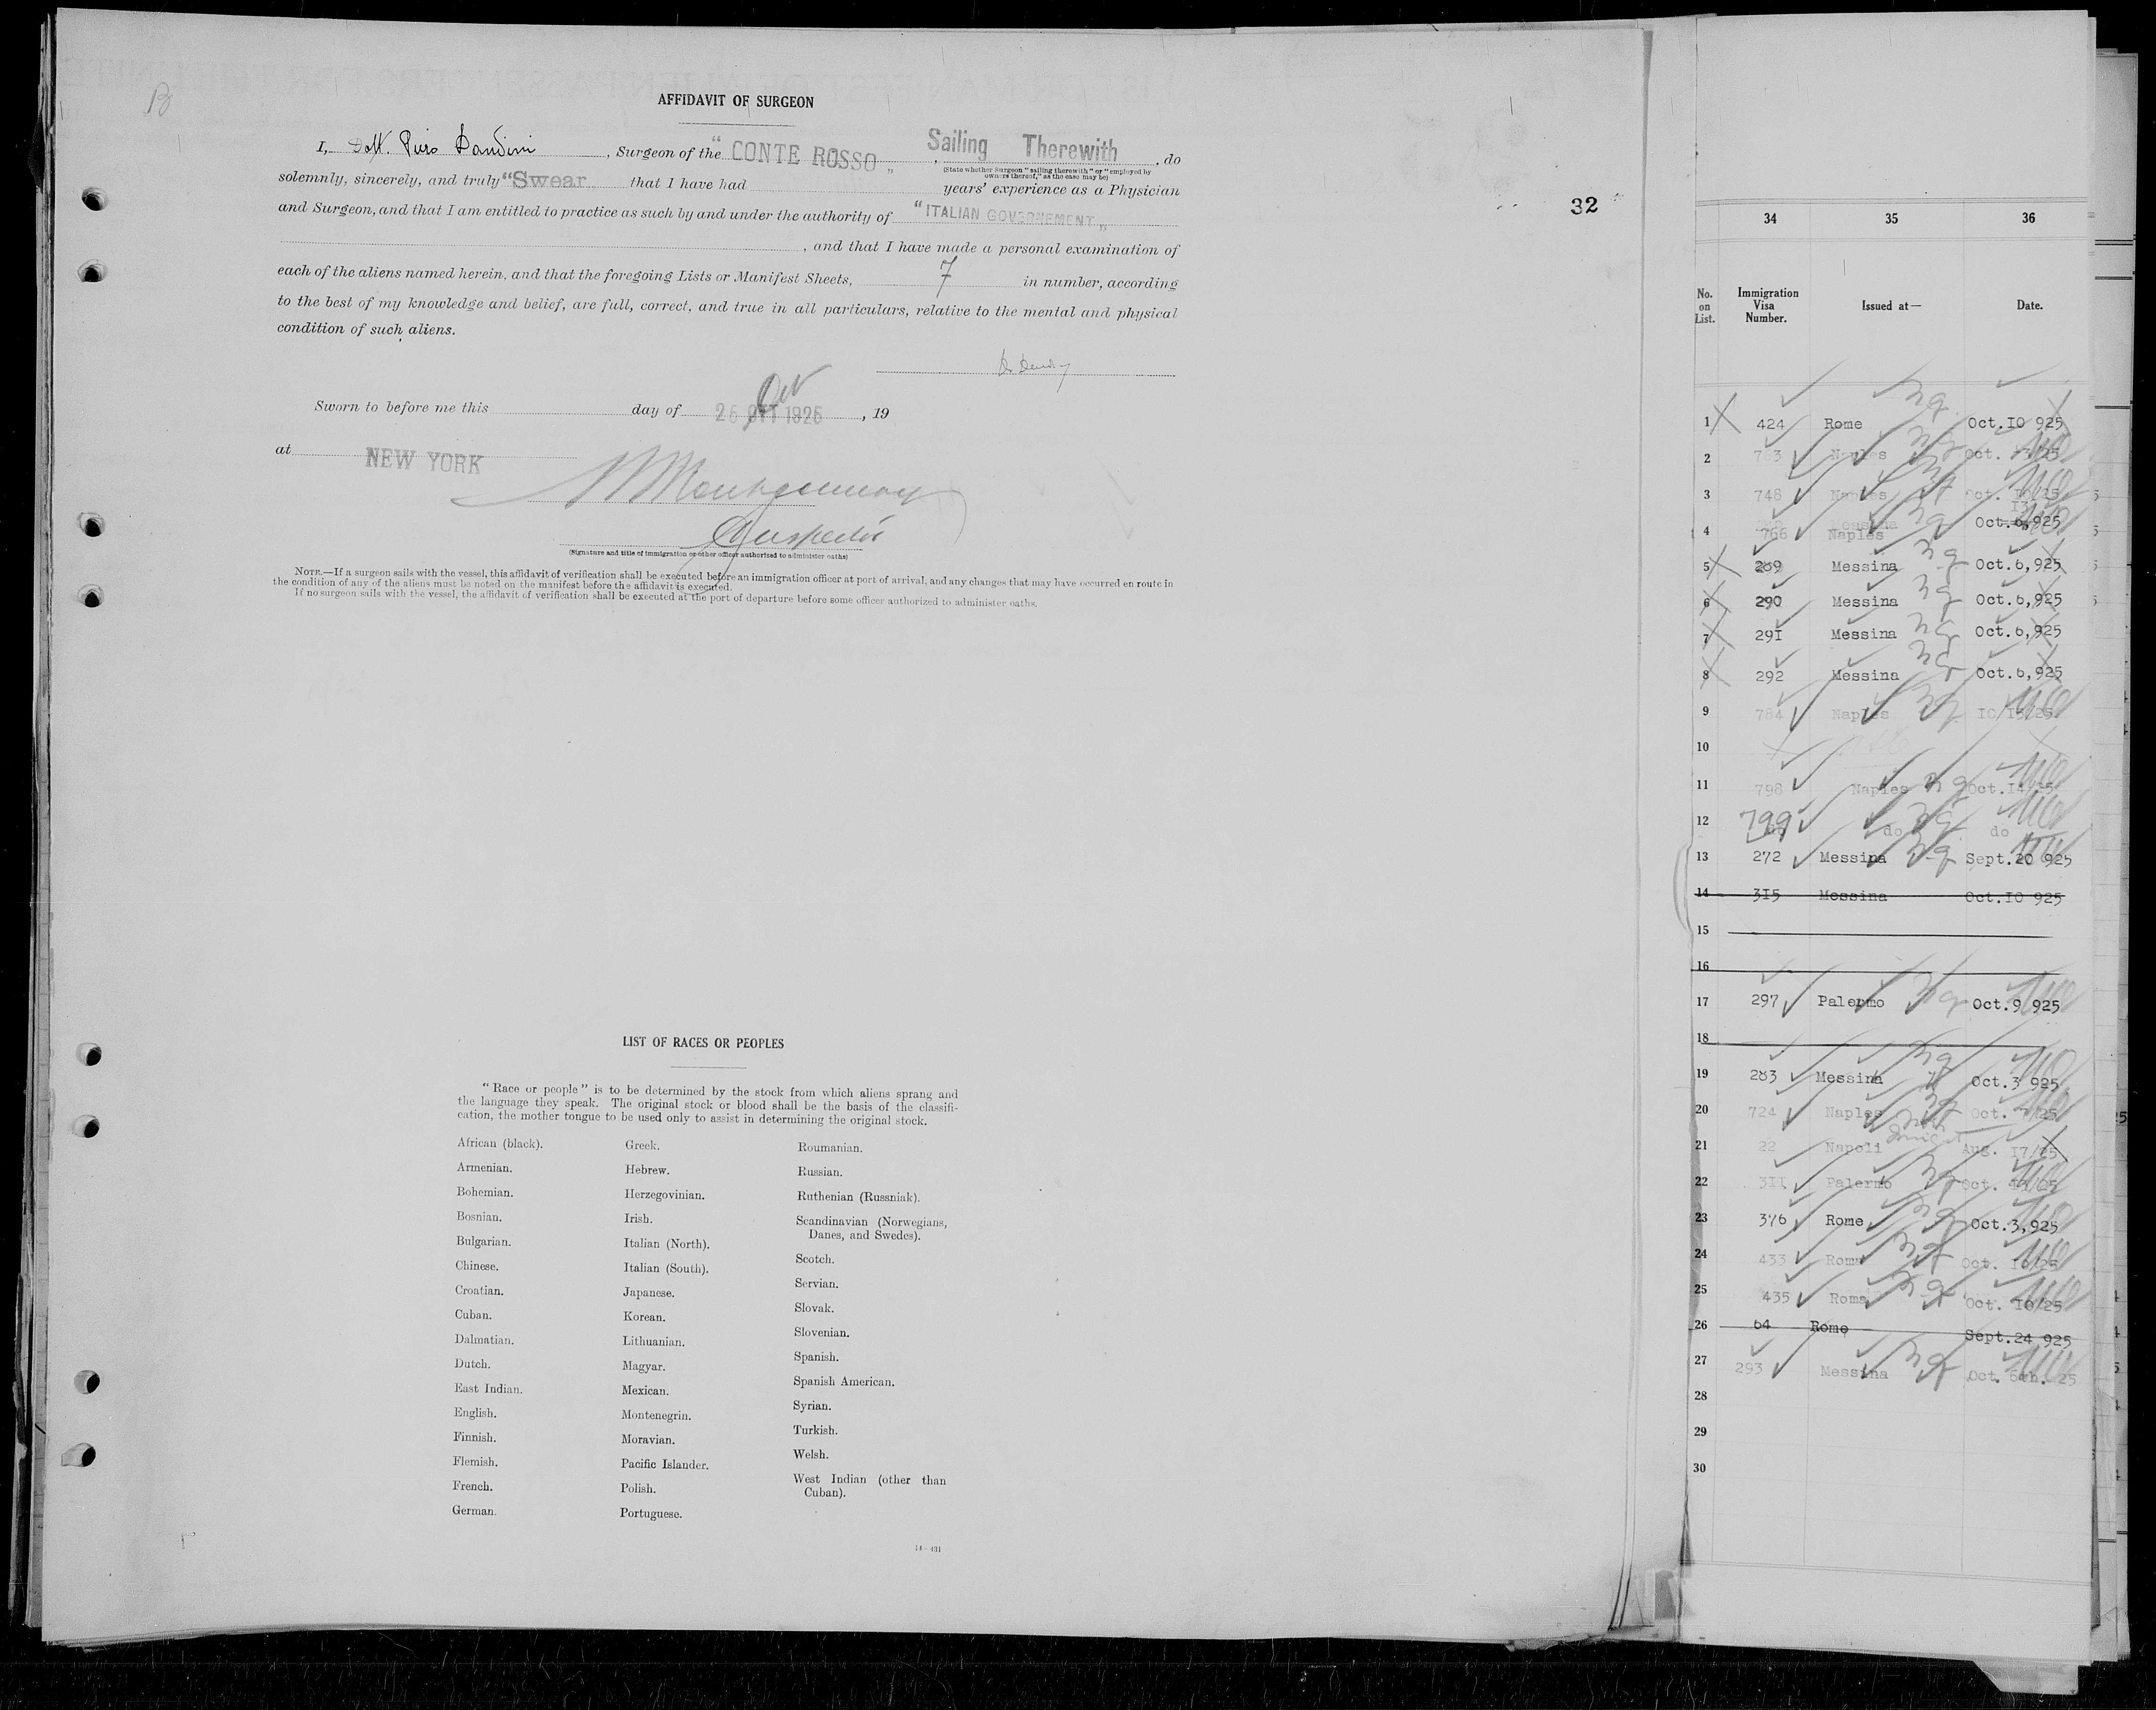 AFFIDAVIT OF SURGEON
I, Dott. Piero Dandini, Surgeon of the "CONTE ROSSO", Sailing Therewith, do
(State whether Surgeon "sailing therewith" or "employed by owners thereof," as the case may be)
solemnly, sincerely, and truly "Swear that I have had years' experience as a Physician
and Surgeon, and that I am entitled to practice as such by and under the authority of "ITALIAN GOVERNEMENT"
, and that I have made a personal examination of
each of the aliens named herein, and that the foregoing Lists or Manifest Sheets, 7 in number, according
to the best of my knowledge and belief, are full, correct, and true in all particulars, relative to the mental and physical
condition of such aliens.
Sworn to before me this day of 26 OTT 1925 Oct, 19
at NEW YORK
Montgomery
Inspector
(Signature and title of immigration or other officer authorized to administer oaths)
NOTE.—If a surgeon sails with the vessel, this affidavit of verification shall be executed before an immigration officer at port of arrival, and any changes that may have occurred en route in
the condition of any of the aliens must be noted on the manifest before the affidavit is executed.
If no surgeon sails with the vessel, the affidavit of verification shall be executed at the port of departure before some officer authorized to administer oaths.
32
LIST OF RACES OR PEOPLES
"Race or people" is to be determined by the stock from which aliens sprang and
the language they speak. The original stock or blood shall be the basis of the classifi-
cation, the mother tongue to be used only to assist in determining the original stock.
African (black).
Armenian.
Bohemian.
Bosnian.
Bulgarian.
Chinese.
Croatian.
Cuban.
Dalmatian.
Dutch.
East Indian.
English.
Finnish.
Flemish.
French.
German.
Greek.
Hebrew.
Herzegovinian.
Irish.
Italian (North).
Italian (South).
Japanese.
Korean.
Lithuanian.
Magyar.
Mexican.
Montenegrin.
Moravian.
Pacific Islander.
Polish.
Portuguese.
Roumanian.
Russian.
Ruthenian (Russniak).
Scandinavian (Norwegians,
Danes, and Swedes).
Scotch.
Servian.
Slovak.
Slovenian.
Spanish.
Spanish American.
Syrian.
Turkish.
Welsh.
West Indian (other than
Cuban).
14—431
34 35 36
No. on List. Immigration Visa Number. Issued at— Date.
1 424 Rome Oct.10 925
2 Naples Oct.
3 748 Naples Oct.
4 766 Naples Oct. 13 925
5 289 Messina Oct.6,925
6 290 Messina Oct.6,925
7 291 Messina Oct.6,925
8 292 Messina Oct.6,925
9 784 Naples 10/13/25
10
11 798 Naples Oct.14/25
12 799 do do
13 272 Messina Sept.20 925
14 315 Messina Oct.10 925
15
16
17 297 Palermo Oct.9 925
18
19 283 Messina Oct.3 925
20 724 Naples Oct. /25
21 22 Napoli Aug. 17/25
22 311 Palermo Oct. /25
23 376 Rome Oct.3,925
24 433 Roma Oct. 10/25
25 435 Roma Oct. 10/25
26 64 Rome Sept.24 925
27 293 Messina Oct. 6th. 25
28
29
30